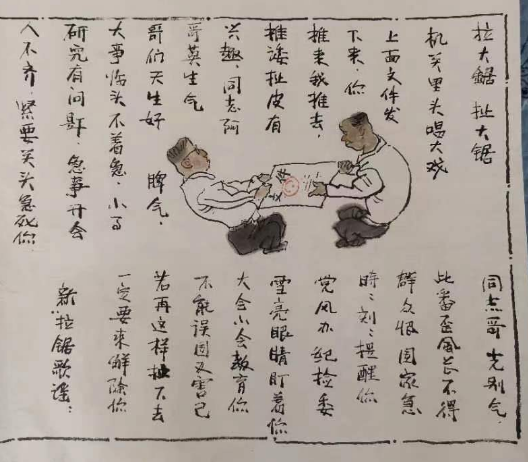 拉大鋸 扯大锯
机关里头唱大戏
上面文件发
下来，你
推来我推去，
推诿扯皮有
兴趣，同志阿
哥莫生气
哥们天生好脾气，
大事临头不着急，小事
研究有问题，急事开会
人不齐，紧要关头急死你
同志哥 先别气，
此番歪风长不得
群众恨国家急
時々刻々提醒你
党风办纪检委
雪亮眼睛盯着你
大会小会教育你
不能误国又害己
若再这样扯下去
一定要来解除你
新拉锯歌谣：